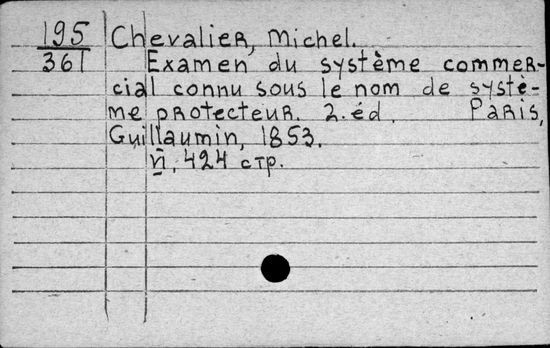 195 Chevalier, Michel.
361 Examen du système commer-
cial connu sous le nom de systè-
me protecteur. 2.éd. Paris,
Guillaumin, 1853.
VI, 424 стр.